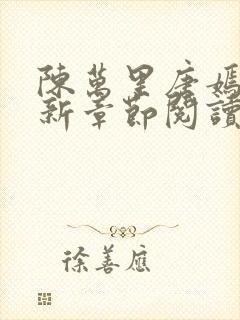 陳萬里唐嫣
新章節閱讀
徐善應